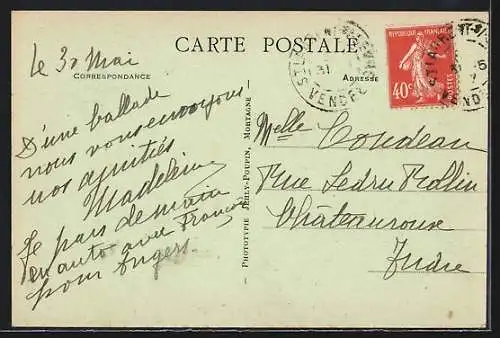 CARTE POSTALE
CORRESPONDANCE
ADRESSE
Le 30 Mai
D'une ballade
nous vous envoyons
nos amitiés
Madeleine
Je pars demain
en auto avec François
pour Angers.
PHOTOTYPIE JEHLY-POUPIN, MORTAGNE
REPUBLIQUE FRANÇAISE
40c
POSTES
VENDEE
31
Melle Condeau
Rue Ledru Rollin
Châteauroux
Indre